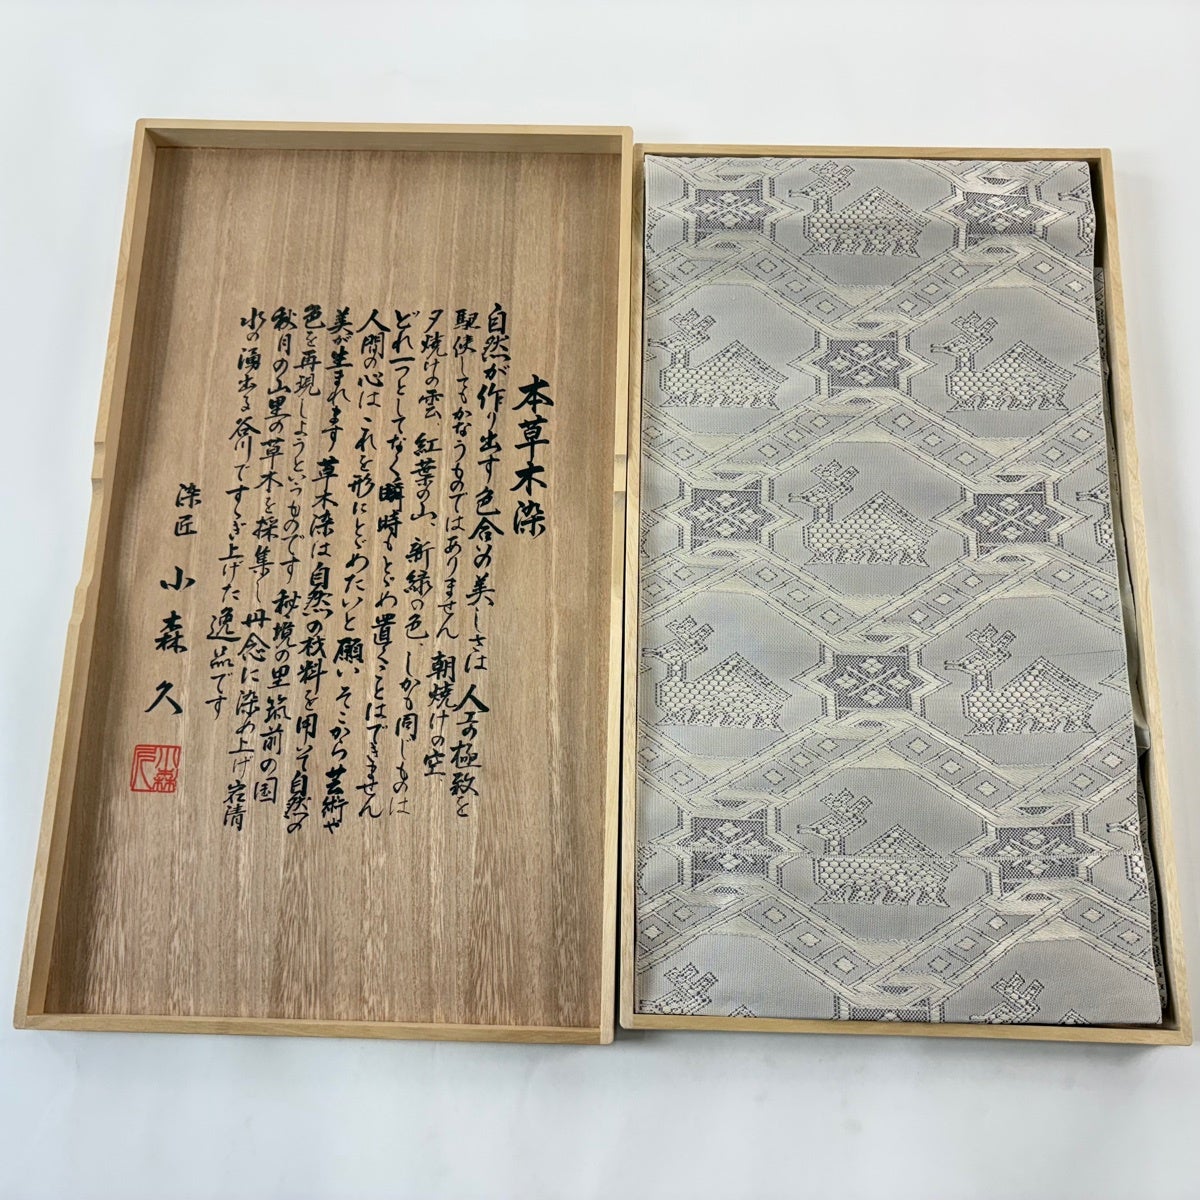 本草木染
自然が作り出す色合の美しさは 人工の極致を
駆使してもかなうものではありません 朝焼けの空
夕焼けの雲、紅葉の山、新緑の色、しかも同じものは
どれ一つとしてなく瞬時もとゞめ置くことはできません
人間の心はこれを形にとゞめたいと願い そこから芸術や
美が生まれます 草木染は自然の材料を用いて自然の
色を再現しようというものです 秘境の里筑前の国
秋月の山里の草木を採集し丹念に染め上げ岩清
水の湧出る谷川ですゝぎ上げた逸品です
染匠 小森久
小森久